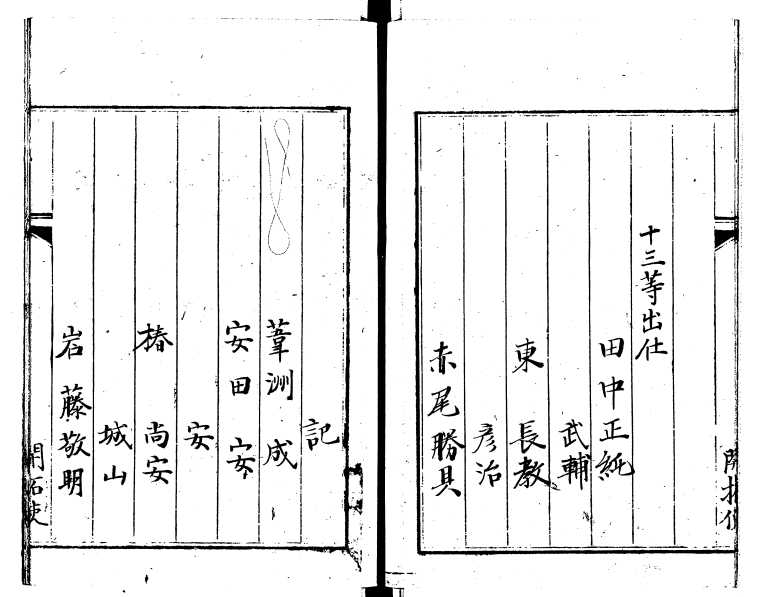 十三等出仕
田中正純
武輔
東 長教
彦治
赤尾勝具
記
葦洲 成
安田 安
安
椿 尚安
城山
岩藤敬明
開拓使